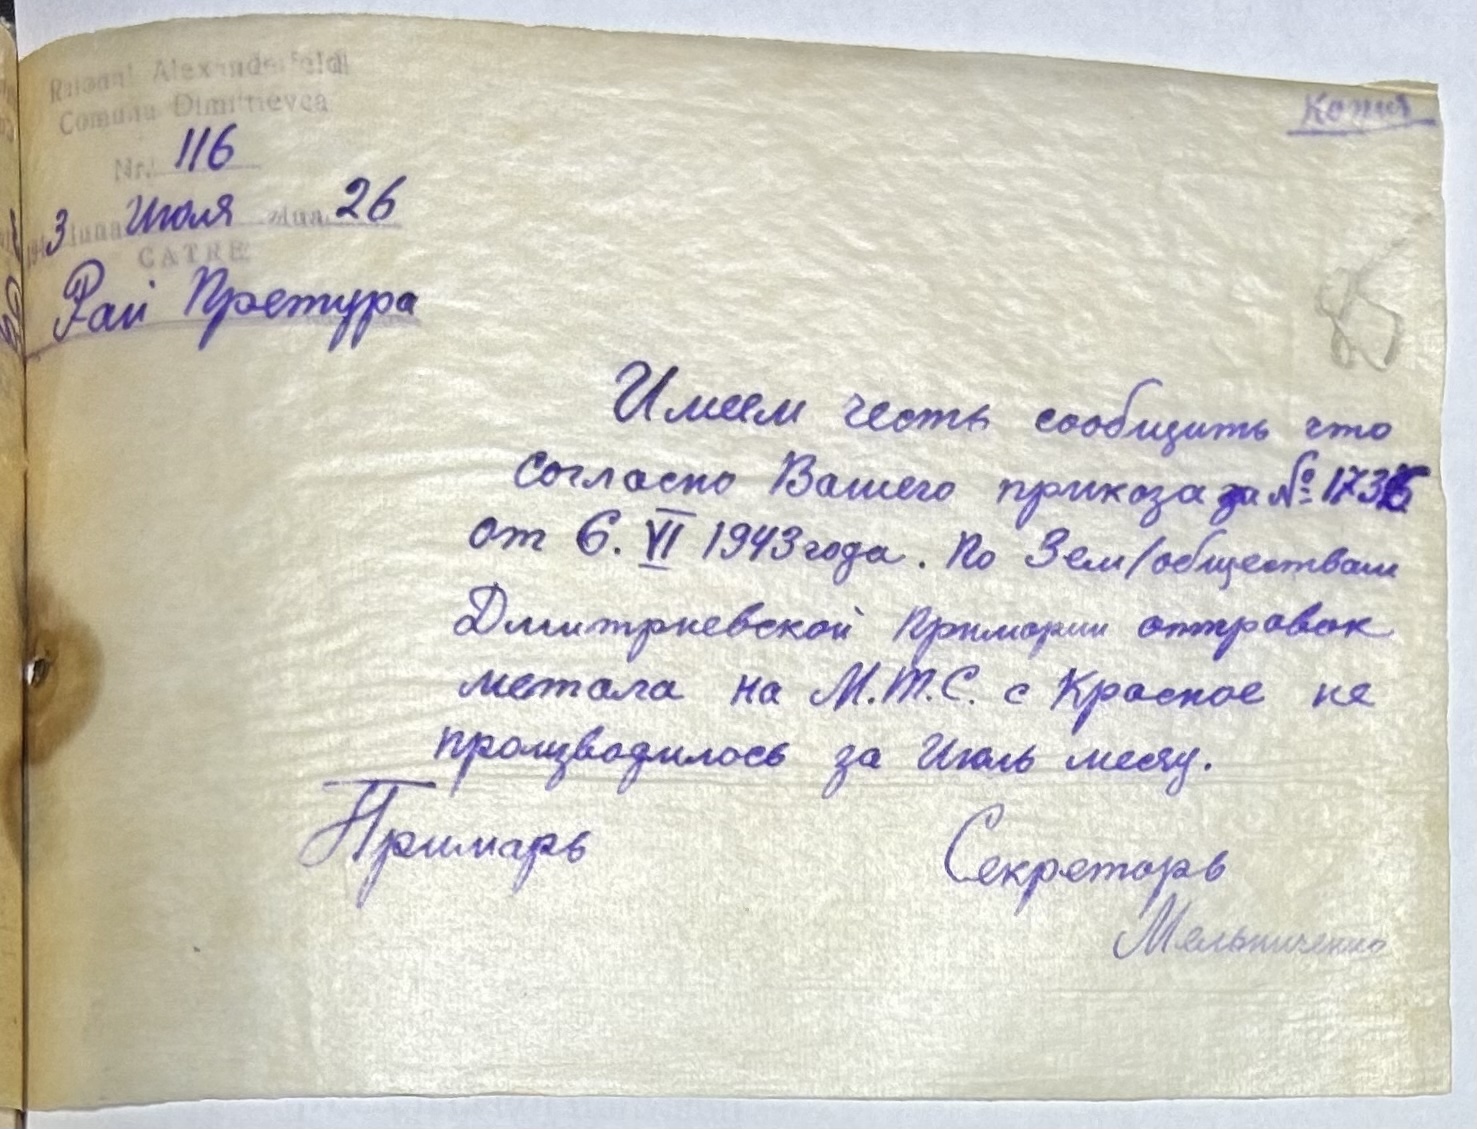 Raionul Alexanderfeld
Comuna Dimitrievca
Копия
Nr. 116
1943 luna Июля ziua 26
CATRE
Рай Претура
85
Имеем честь сообщить что
согласно Вашего приказа за № 1736
от 6. VI 1943 года. По Зем/обществам
Дмитриевской Примарии отправок
метала на М.Т.С. с Красное не
производилось за Июль месяц.
Примарь
Секретарь
Мельниченко